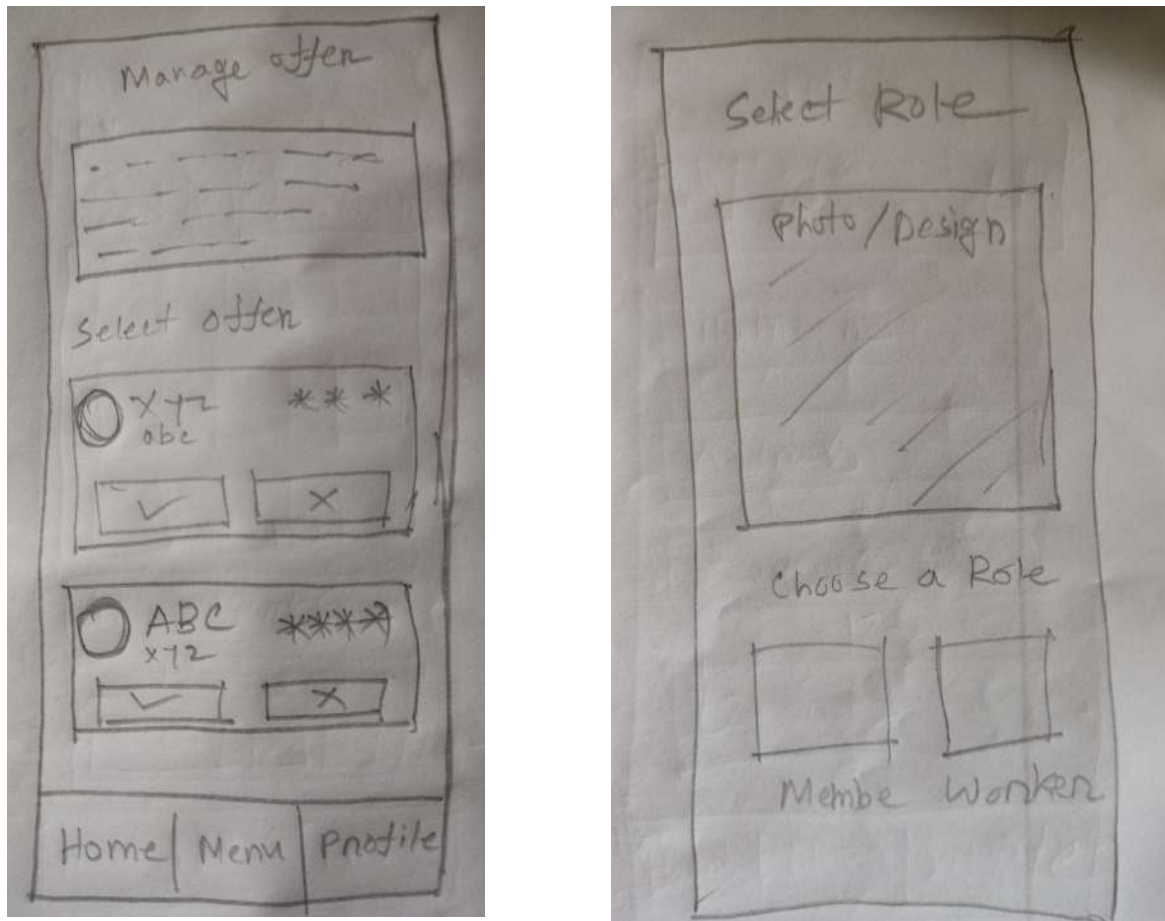 Manage offer
Select offer
XYZ
abc
***
✓
X
ABC
xyz
****
✓
X
Home
Menu
Profile
Select Role
Photo/Design
Choose a Role
Membe
Worker